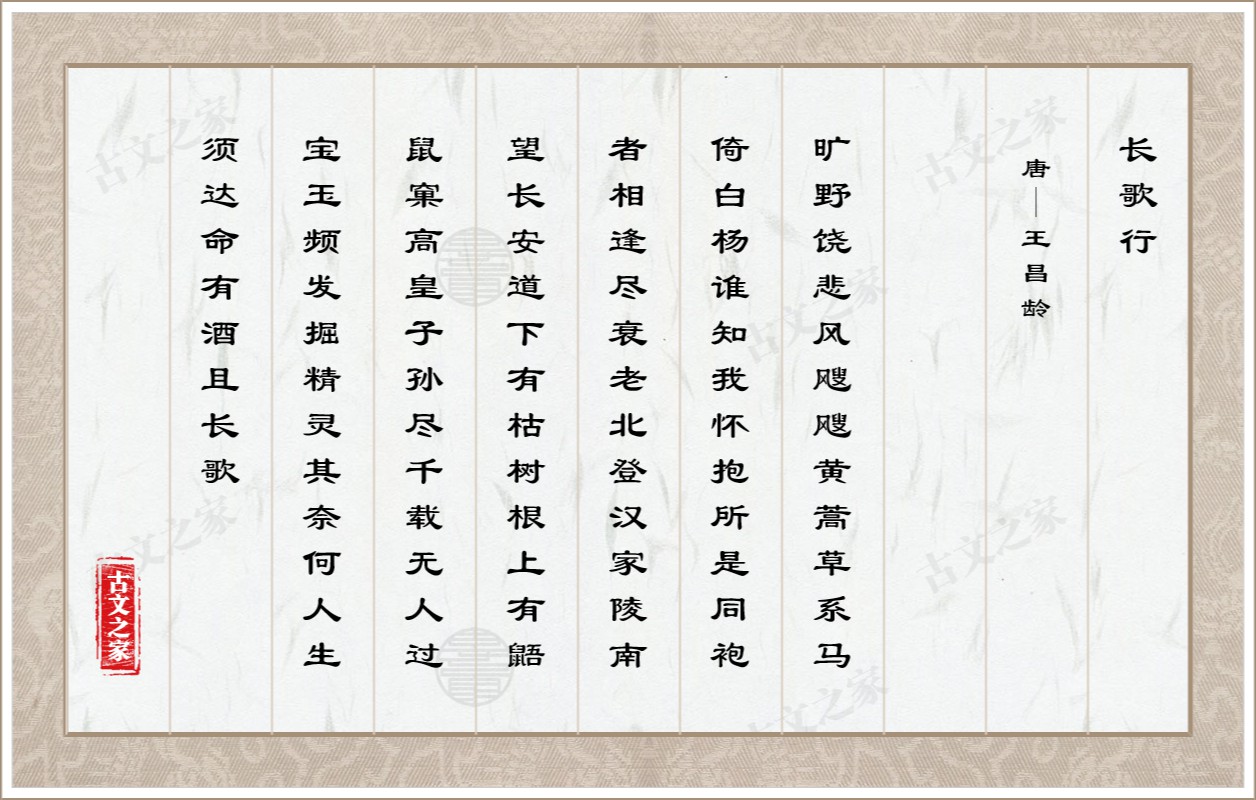 长歌行
唐—王昌龄
旷野饶悲风飕飕黄蒿草系马
倚白杨谁知我怀抱所是同袍
者相逢尽衰老北登汉家陵南
望长安道下有枯树根上有鼯
鼠窠高皇子孙尽千载无人过
宝玉频发掘精灵其奈何人生
须达命有酒且长歌
古文之家
古文之家
古文之家
古文之家
古文之家
古文之家
古文之家